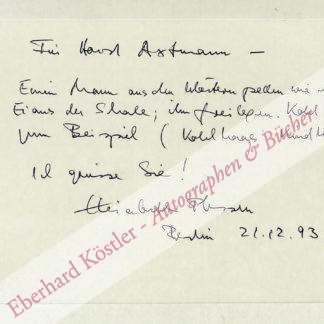 Für Horst Axtmann —
Einen Mann aus den Wörtern pellen wie
Ei aus der Schale; ihn freilegen. Kohl
zum Beispiel ( Kohlhaas
Ich grüsse Sie!
Elisabeth Plessen
Berlin 21.12.93
Eberhard Köstler - Autographen & Bücher